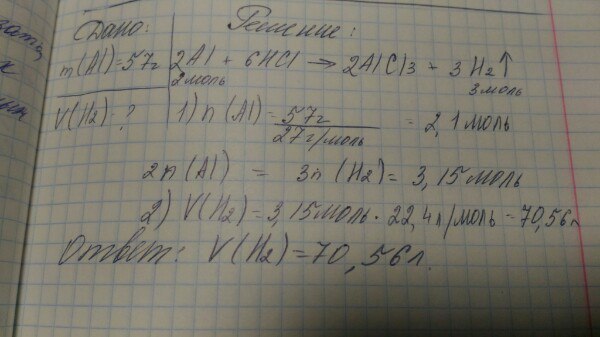 Дано: Решение:
m(Al)=57г 2Al + 6HCl → 2AlCl3 + 3H2↑
2моль 3моль
V(H2)-? 1) n(Al)= 57г / 27г/моль = 2,1моль
2n(Al) = 3n(H2)= 3,15моль
2) V(H2)= 3,15моль · 22,4л/моль = 70,56л
Ответ: V(H2)=70,56л.